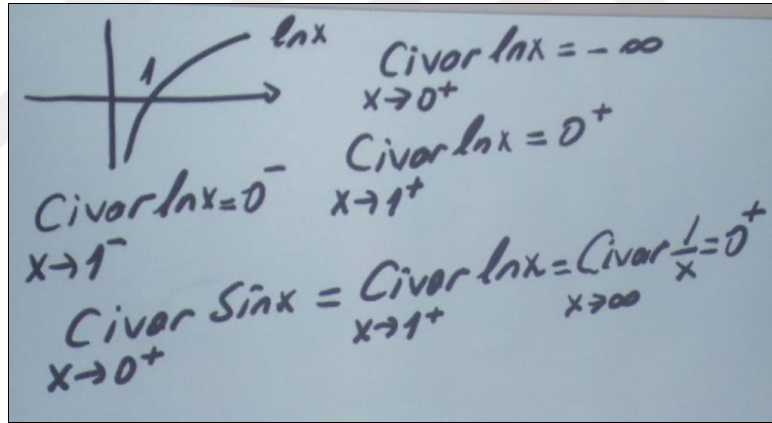 lnx
1
Civar lnx = - ∞
x→0⁺
Civar lnx = 0⁺
x→1⁺
Civar lnx = 0⁻
x→1⁻
Civar Sinx = Civar lnx = Civar 1/x = 0⁺
x→0⁺ x→1⁺ x→∞